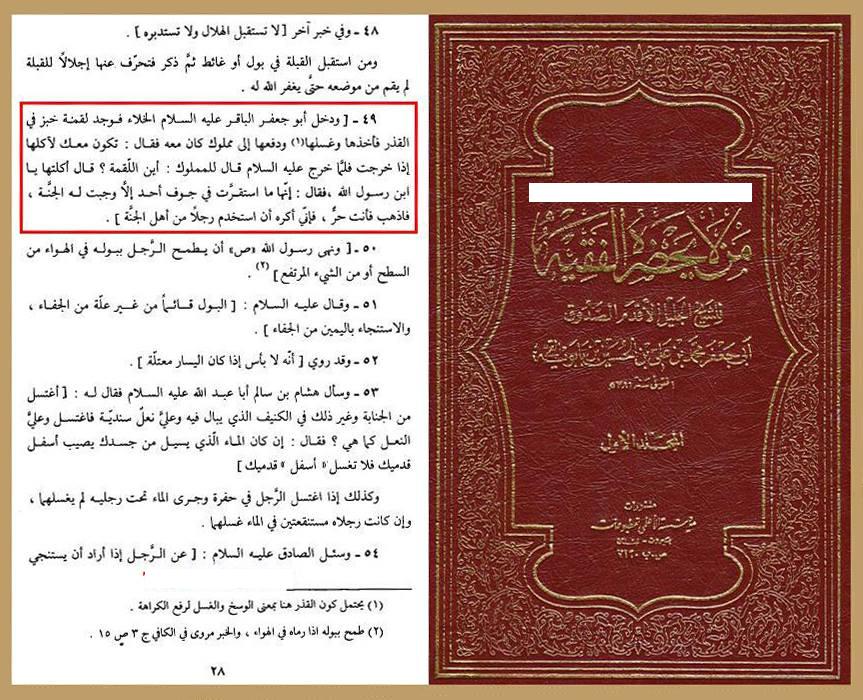 ٤٨ ـ وفي خبر آخر [ لا تستقبل الهلال ولا تستدبره ] .
ومن استقبل القبلة في بول أو غائط ثمَّ ذكر فتحرَّف عنها إجلالًا للقبلة
لم يقم من موضعه حتىَّ يغفر الله له .
٤٩ ـ [ ودخل أبو جعفر الباقر عليه السلام الخلاء فوجد لقمة خبز في
القذر فأخذها وغسلها(١) ودفعها إلى مملوك كان معه فقال : تكون معك لآكلها
إذا خرجت فلمَّا خرج عليه السلام قال للمملوك : أين اللّقمة ؟ قال أكلتها يا
ابن رسول الله ،فقال : إنّها ما استقرَّت في جوف أحد إلَّا وجبت له الجنَّة ،
فاذهب فأنت حرٌّ ، فإنّي أكره أن استخدم رجلًا من أهل الجنَّة ] .
٥٠ ـ [ ونهى رسول الله «ص» أن يطمح الرَّجل ببوله في الهواء من
السطح أو من الشيء المرتفع ] (٢) .
٥١ ـ وقال عليه السلام : [ البول قائماً من غير علّة من الجفاء ،
والاستنجاء باليمين من الجفاء ] .
٥٢ ـ وقد روي [ أنّه لا بأس إذا كان اليسار معتلّة ] .
٥٣ ـ وسأل هشام بن سالم أبا عبد الله عليه السلام فقال له : [ أغتسل
من الجنابة وغير ذلك في الكنيف الذي يبال فيه وعليَّ نعلٌ سنديّة فاغتسل وعليَّ
النعل كما هي ؟ فقال : إن كان الماء الّذي يسيل من جسدك يصيب أسفل
قدميك فلا تغسل« أسفل » قدميك ]
وكذلك إذا اغتسل الرَّجل في حفرة وجرى الماء تحت رجليه لم يغسلهما ،
وإن كانت رجلاه مستنقعتين في الماء غسلهما .
٥٤ ـ وسئل الصادق عليه السلام : [ عن الرَّجل إذا أراد أن يستنجي
(١) يحتمل كون القذر هنا بمعنى الوسخ والغسل لرفع الكراهة .
(٢) طمح ببوله اذا رماه في الهواء ، والخبر مروى في الكافي ج ٣ ص ١٥ .
٢٨
من لا يحضره الفقيه
للشيخ الجليل الأقدم الصدوق
أبي جعفر محمد بن علي بن الحسين بن بابويه القمي
المتوفى سنة ٣٨١
المجلد الأول
منشورات
مؤسسة الأعلمي للمطبوعات
بيروت - لبنان
ص.ب ٧١٢٠